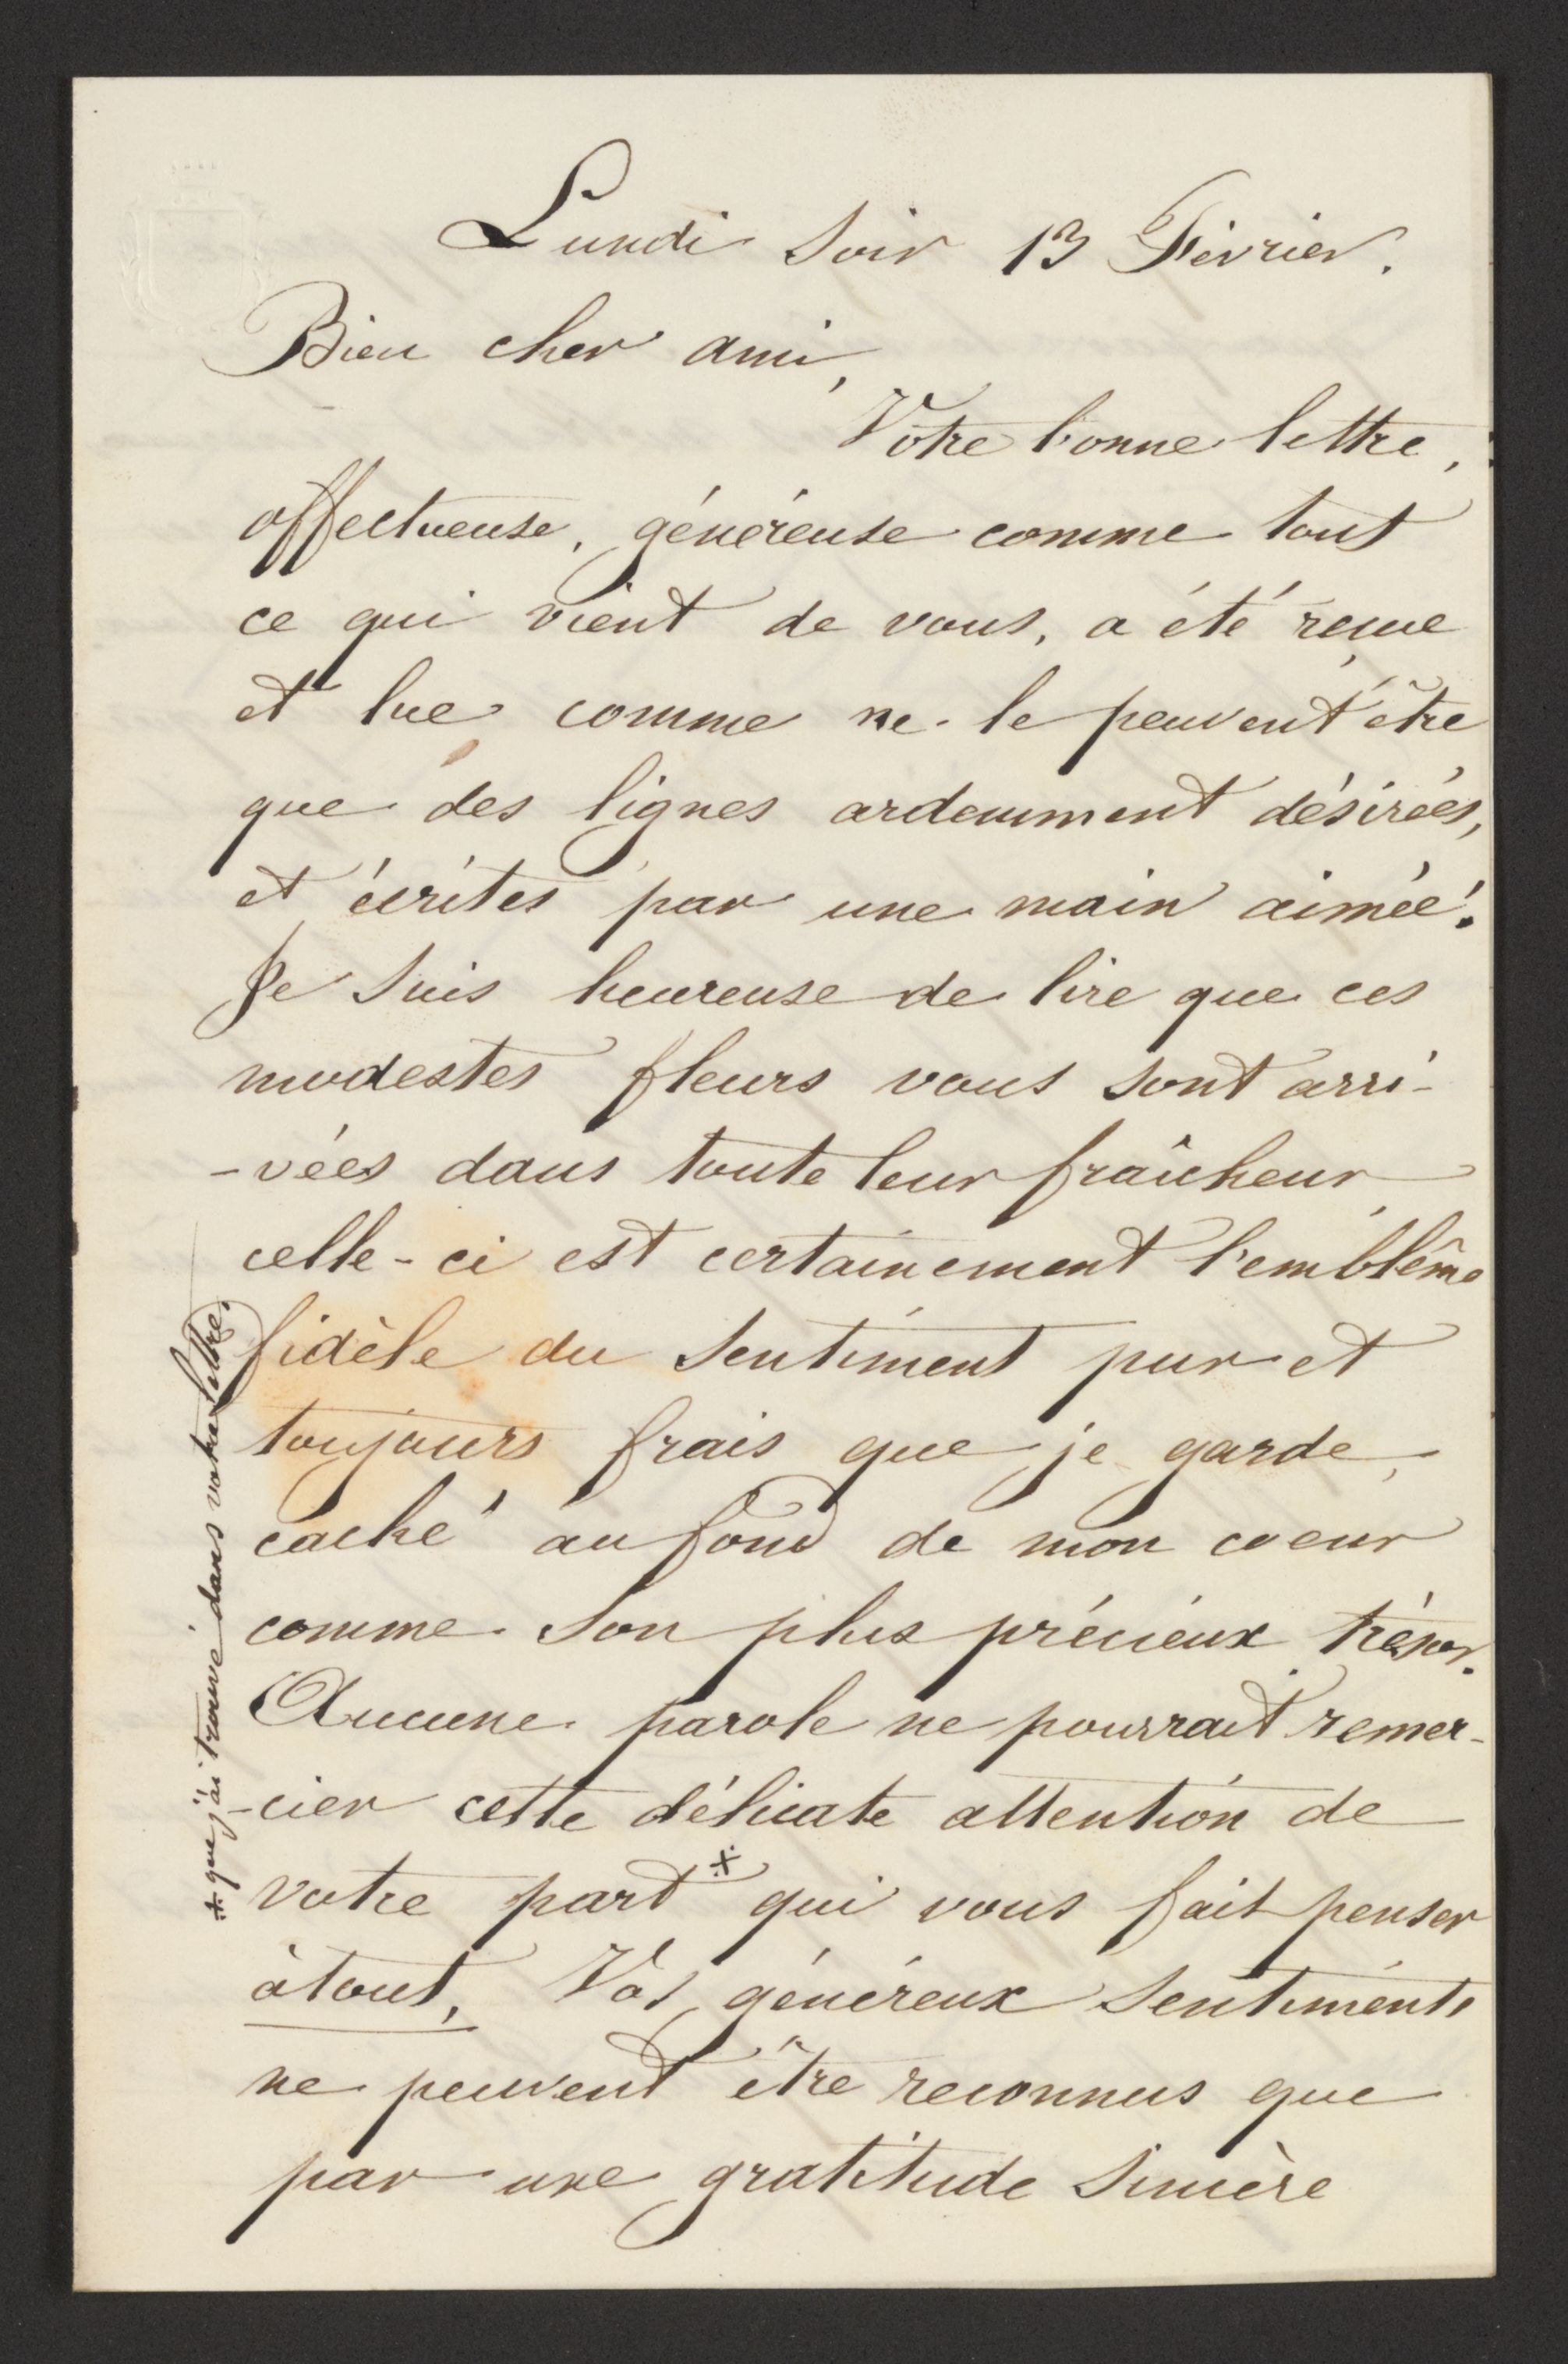 Lundi soir 13 Février.
Bien cher ami,
Votre bonne lettre,
affectueuse, généreuse comme tout
ce qui vient de vous, a été reçue
et lue comme ne le peuvent être
que des lignes ardemment désirées,
et écrites par une main aimée!
Je suis heureuse de lire que ces
modestes fleurs vous sont arri-
-vées dans toute leur fraîcheur,
celle-ci est certainement l'emblême
fidèle du sentiment pur et
toujours frais que je garde,
caché au fond de mon coeur
comme son plus précieux trésor.
Aucune parole ne pourrait remer-
-cier cette délicate attention de
votre part * qui vous fait penser
à tout. Vos généreux sentiments
ne peuvent être reconnus que
par une gratitude sincère
* que j'ai trouvé dans votre lettre.